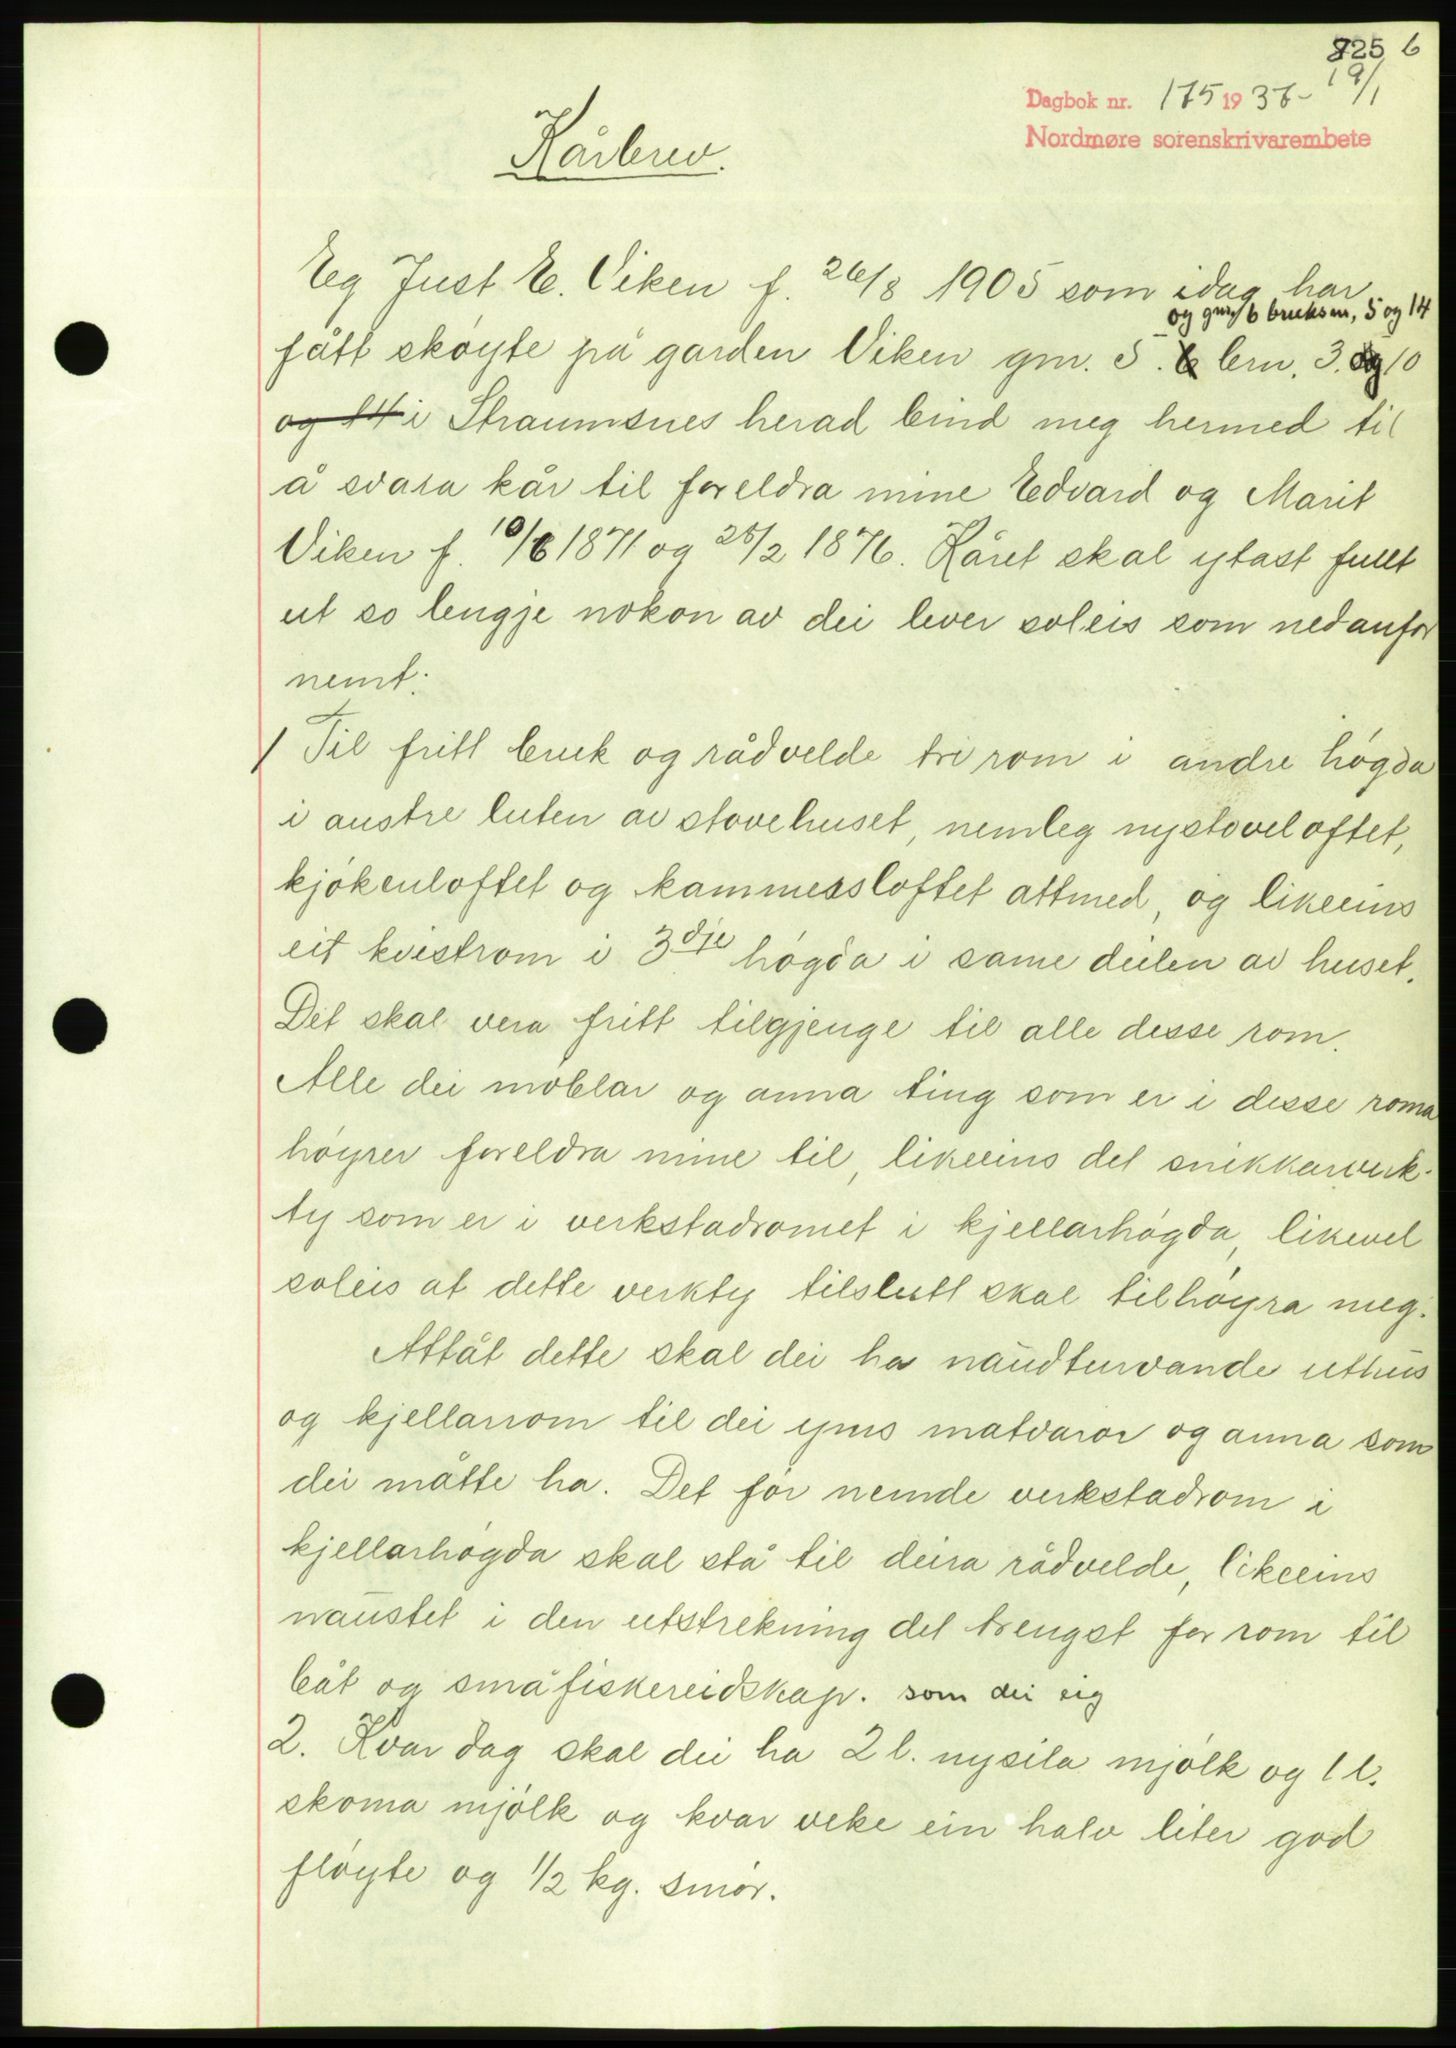 825 6
Dagbok nr. 175 1937 - 19/1
Nordmøre sorenskrivarembete
Kårbrev.
Eg Just E. Viken f. 26/8 1905 som idag har
og gnr. 6 bruksnr, 5 og 14
fått skøyte på garden Viken gnr. 5. brn. 3. og 10
og 14 i Straumsnes herad bind meg hermed til
å svara kår til foreldra mine Edvard og Marit
Viken f. 10/6 1871 og 25/2 1876. Kåret skal ytast fullt
ut so lengje nokon av dei lever soleis som nedanfor
nemt:
1 Til fritt bruk og rådvelde tri rom i andre høgda
i austre luten av stovehuset, nemleg nystoveloftet,
kjøkenloftet og kammersloftet attmed, og likeeins
eit kvistrom i 3dje høgda i same deilen av huset.
Det skal vera fritt tilgjenge til alle desse rom.
Alle dei møblar og anna ting som er i desse roma
høyrer foreldra mine til, likeeins det snikkarverk-
ty som er i verkstadromet i kjellarhøgda, likevel
soleis at dette verkty tilslutt skal tilhøyra meg.
Attåt dette skal dei ha naudturvande uthus
og kjellarrom til dei yms matvaror og anna som
dei måtte ha. Det før nemde verkstadrom i
kjellarhøgda skal stå til deira rådvelde, likeeins
naustet i den utstrekning det trengst for rom til
båt og småfiskereidskap. som dei eig
2. Kvar dag skal dei ha 2 l. nysila mjølk og 1 l.
skoma mjølk og kvar veke ein halv liter god
fløyte og 1/2 kg. smør.